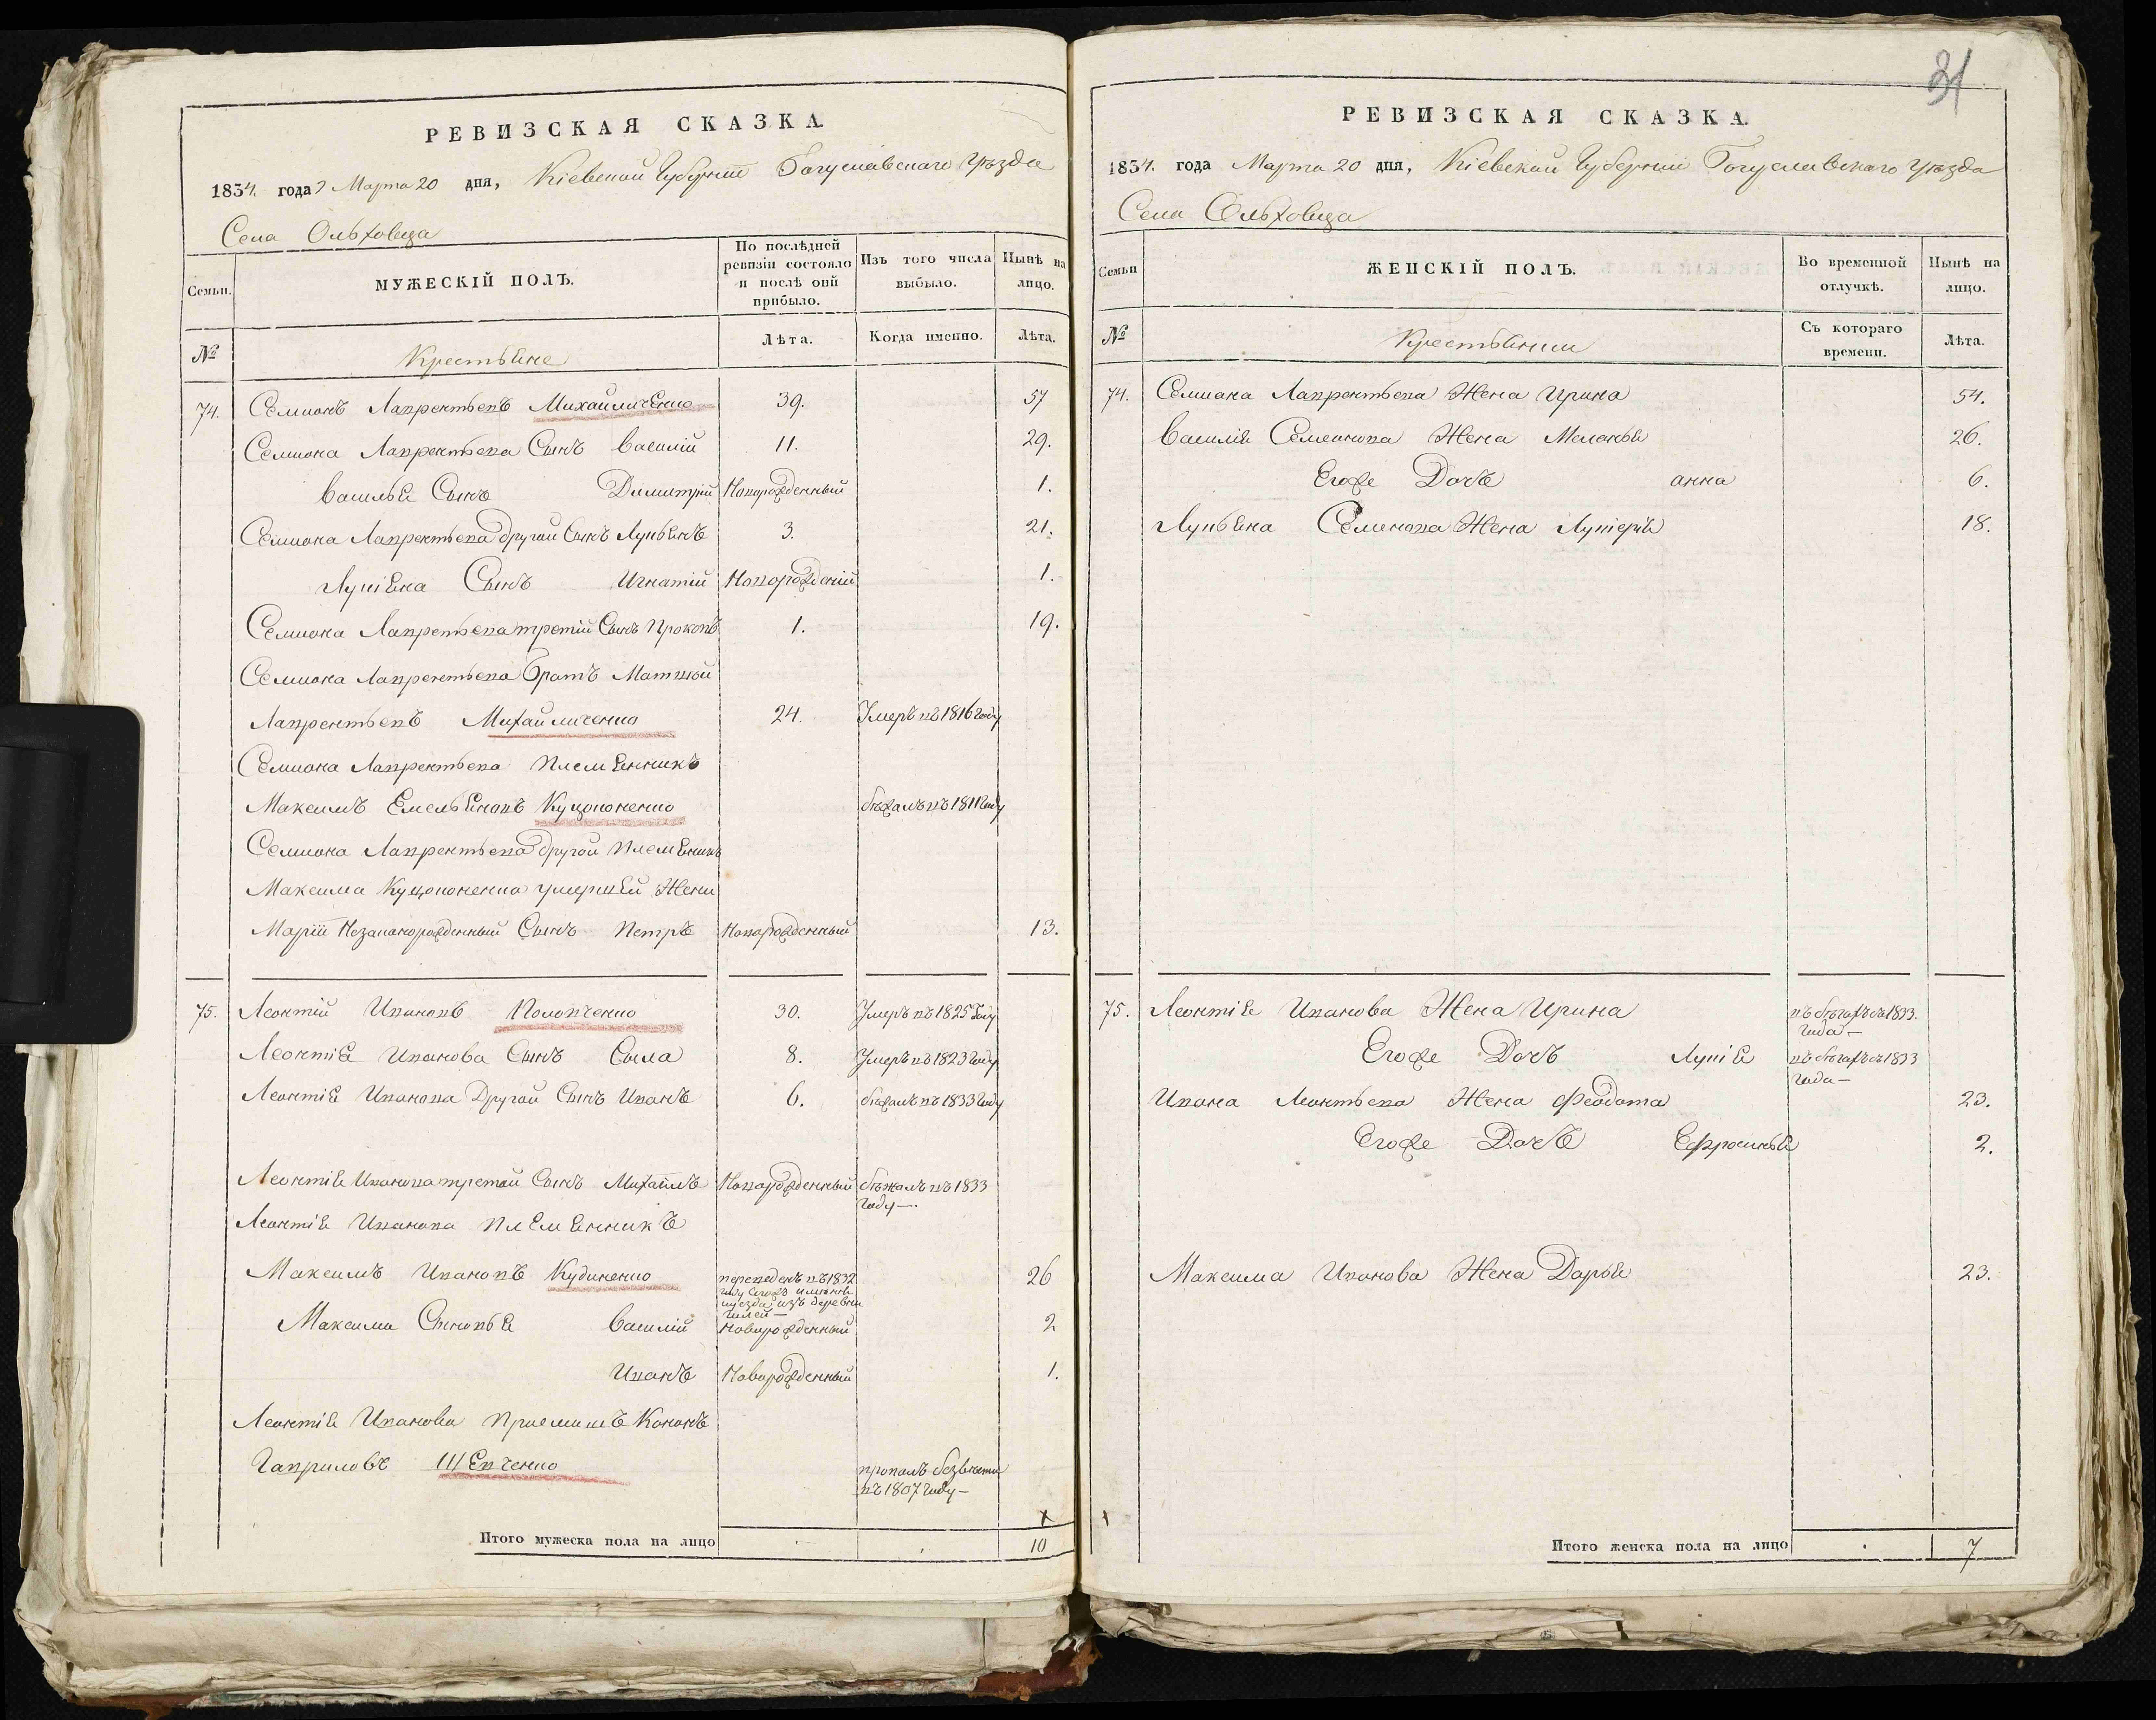 31
РЕВИЗСКАЯ СКАЗКА.
1834. года Марта 20 дня, Кіевской Губерніи Богуславскаго Уѣзда
Села Ольховца
Семьи.
МУЖЕСКІЙ ПОЛЪ.
По послѣдней ревизіи состояло и послѣ оий прибыло.
Изъ того числа выбыло.
Нынѣ на лицо.
№
Крестьяне
Лѣта.
Когда именно.
Лѣта.
74. Семионъ Лаврентьевъ Михайличенко 39. 57
Семиона Лаврентьева Сынъ Василій 11. 29.
Василья Сынъ Димитрій Новорожденный 1.
Семиона Лаврентьева другой Сынъ Лукьянъ 3. 21.
Лукіяна Сынъ Игнатій Новорожденій 1.
Семиона Лавретьева третій Сынъ Прокопъ 1. 19.
Семиона Лаврентьева Братъ Матвѣй
Лаврентьевъ Михайличенко 24. Умеръ въ 1816 Году
Семиона Лаврентьева Племянникъ
Максимъ Емельяновъ бѣжалъ въ 1811 Году
Семиона Лаврентьева другой Племяникъ
Максима умершей Жены
Маріи Незаконорожденный Сынъ Петръ Новорожденный 13.
75. Леонтій Ивановъ Умеръ въ 1825 Году 30.
Леонтія Иванова Сынъ Сыла 8. Умеръ въ 1823 Году
Леонтія Иванова Другой Сынъ Иванъ 6. бѣжалъ въ 1833 Году
Леонтія Иванова третій Сынъ Михаилъ Новорожденный бѣжалъ въ 1833
Году —.
Леонтія Иванова Племянникъ
Максимъ Ивановъ Кудиненко переведенъ въ 1832 26
Году уезда изъ деревни
Максима Сыновья Василій Новорожденный 2
Иванъ Новорожденный 1.
Леонтія Иванова Приемишъ Кононъ
Гавриловъ Шевченко пропалъ безвѣсти
въ 1807 Году —
Итого мужеска пола на лицо 10
РЕВИЗСКАЯ СКАЗКА.
1834. года Марта 20 дня, Кіевской Губерніи Богуславскаго Уѣзда
Села Ольховца
Семьи
ЖЕНСКІЙ ПОЛЪ.
Во временной отлучкѣ.
Нынѣ на лицо.
№
Крестьянки
Съ котораго времени.
Лѣта.
74. Семиона Лаврентьева Жена Ирина 54.
Василія Семенова Жена Меланья 26.
Егоже Дочь анна 6.
Лукьяна Семенова Жена Лукерія 18.
75. Леонтія Иванова Жена Ирина въ бѣгахъ съ 1833.
Года —
Егоже Дочь Лукія въ бѣгахъ съ 1833
Года —
Ивана Леонтьева Жена Феодота 23.
Егоже Дочь Ефросинья 2.
Максима Иванова Жена Дарья 23.
Итого женска пола на лицо 7